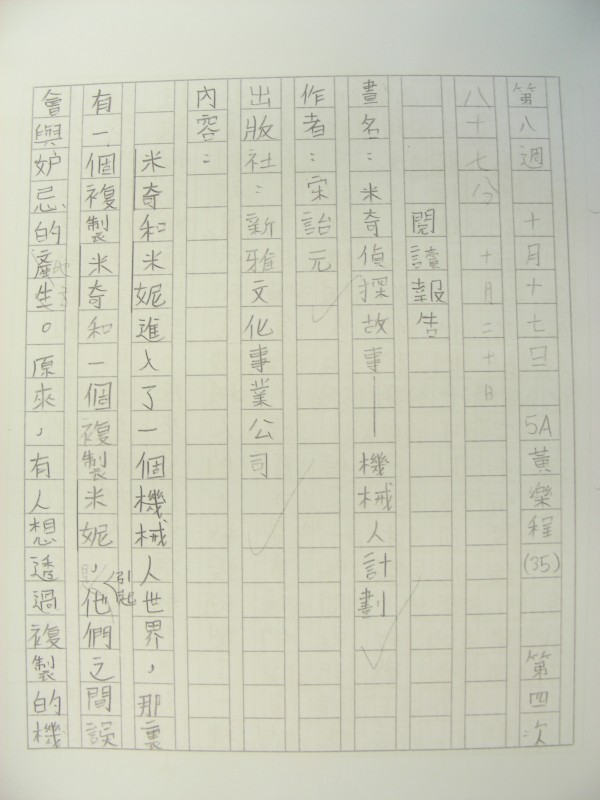 第八週 十月十七日 5A黃樂程(35) 第四次
八十七分 十月二十日
閱讀報告
書名：米奇偵探故事——機械人計劃
作者：宋詒元
出版社：新雅文化事業公司
內容：
米奇和米妮進入了一個機械人世界，那裏
有一個複製米奇和一個複製米妮，引起他們之間誤
會與妒忌的產生。原來，有人想透過複製的機